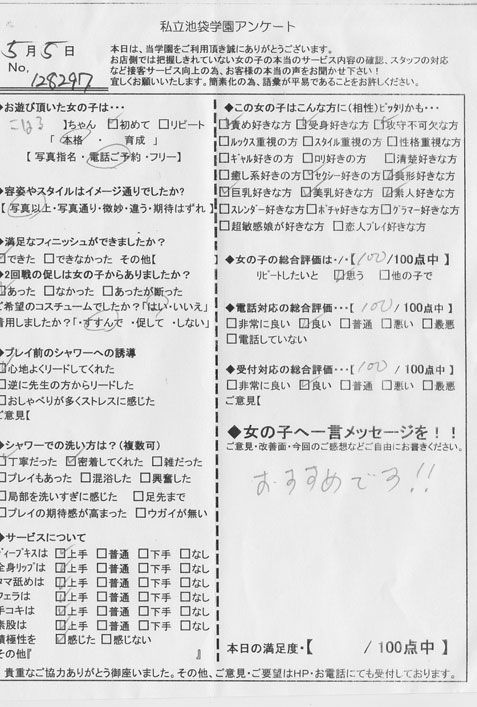 私立池袋学園アンケート
5月5日
No, 128297
本日は、当学園をご利用頂き誠にありがとうございます。
お店側では把握しきれていない女の子の本当のサービス内容の確認、スタッフの対応
など接客サービス向上の為、お客様の本当の声をお聞かせ下さい!
宜しくお願いいたします。簡素化の為、語彙が平易であることをお許しください。
◆お遊び頂いた女の子は・・・
】ちゃん □初めて □リピート
「 本格 ・ 育成 」
【 写真指名・電話ご予約・フリー】
◆容姿やスタイルはイメージ通りでしたか?
【 写真以上・写真通り・微妙・違う・期待はずれ 】
◆満足なフィニッシュができましたか?
□できた □できなかった その他【
◆2回戦の促しは女の子からありましたか?
□あった □なかった □あったが断った
ご希望のコスチュームでしたか?「はい・いいえ」
着用しましたか?「・すすんで ・促して ・しない」
◆プレイ前のシャワーへの誘導
□心地よくリードしてくれた
□逆に先生の方からリードした
□おしゃべりが多くストレスに感じた
ご意見【
◆シャワーでの洗い方は?(複数可)
□丁寧だった □密着してくれた □雑だった
□プレイもあった □混浴した □興奮した
□局部を洗いすぎに感じた □足先まで
□プレイの期待感が高まった □ウガイが無い
◆サービスについて
ディープキスは □上手 □普通 □下手 □なし
全身リップは □上手 □普通 □下手 □なし
タマ舐めは □上手 □普通 □下手 □なし
フェラは □上手 □普通 □下手 □なし
手コキは □上手 □普通 □下手 □なし
素股は □上手 □普通 □下手 □なし
積極性を □感じた □感じない
その他『 』
◆この女の子はこんな方に(相性)ピッタリかも・・
□責め好きな方 □受身好きな方 □攻守不可欠な方
□ルックス重視の方 □スタイル重視の方 □性格重視な方
□ギャル好きの方 □ロリ好きの方 □清楚好きな方
□癒し系好きな方 □セクシー好きの方 □美形好きな方
□巨乳好きな方 □美乳好きな方 □素人好きな方
□スレンダー好きな方 □ポチャ好きな方 □グラマー好きな方
□超敏感娘が好きな方 □恋人プレイ好きな方
◆女の子の総合評価は・・【 100 /100点中 】
リピートしたいと □思う □他の子で
◆電話対応の総合評価・・・【 100 /100点中 】
□非常に良い □良い □普通 □悪い □最悪
□電話していない
◆受付対応の総合評価・・・【 100 /100点中 】
□非常に良い □良い □普通 □悪い □最悪
ご意見【
◆女の子へ一言メッセージを!!
ご意見・改善面・今回のご感想などご自由にお書きください。
おすすめです!!
本日の満足度・【 /100点中 】
貴重なご協力ありがとう御座いました。その他、ご意見・ご要望はHP・お電話にても受付しております。